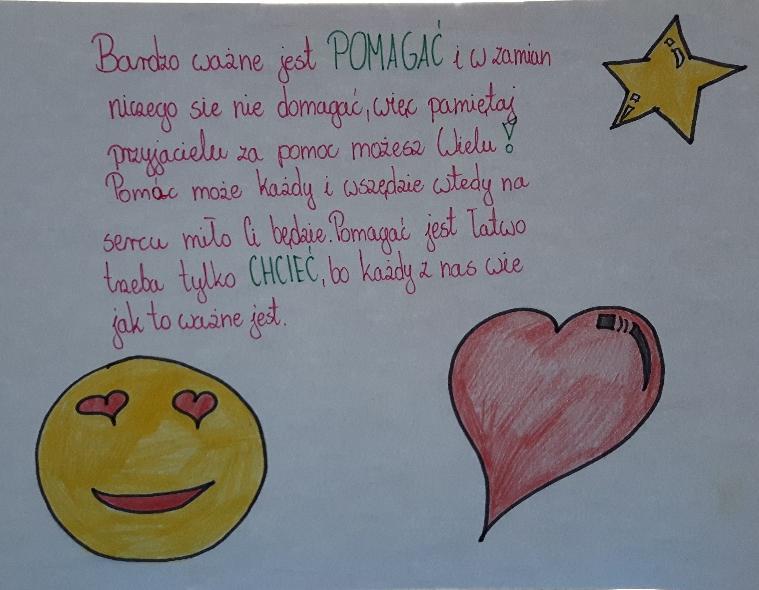 Bardzo ważne jest POMAGAĆ i w zamian
niczego sie nie domagać, więc pamiętaj
przyjacielu za pomoc możesz Wielu!
Pomóc może każdy i wszędzie wtedy na
sercu miło Ci będzie. Pomagać jest łatwo
trzeba tylko CHCIEĆ, bo każdy z nas wie
jak to ważne jest.